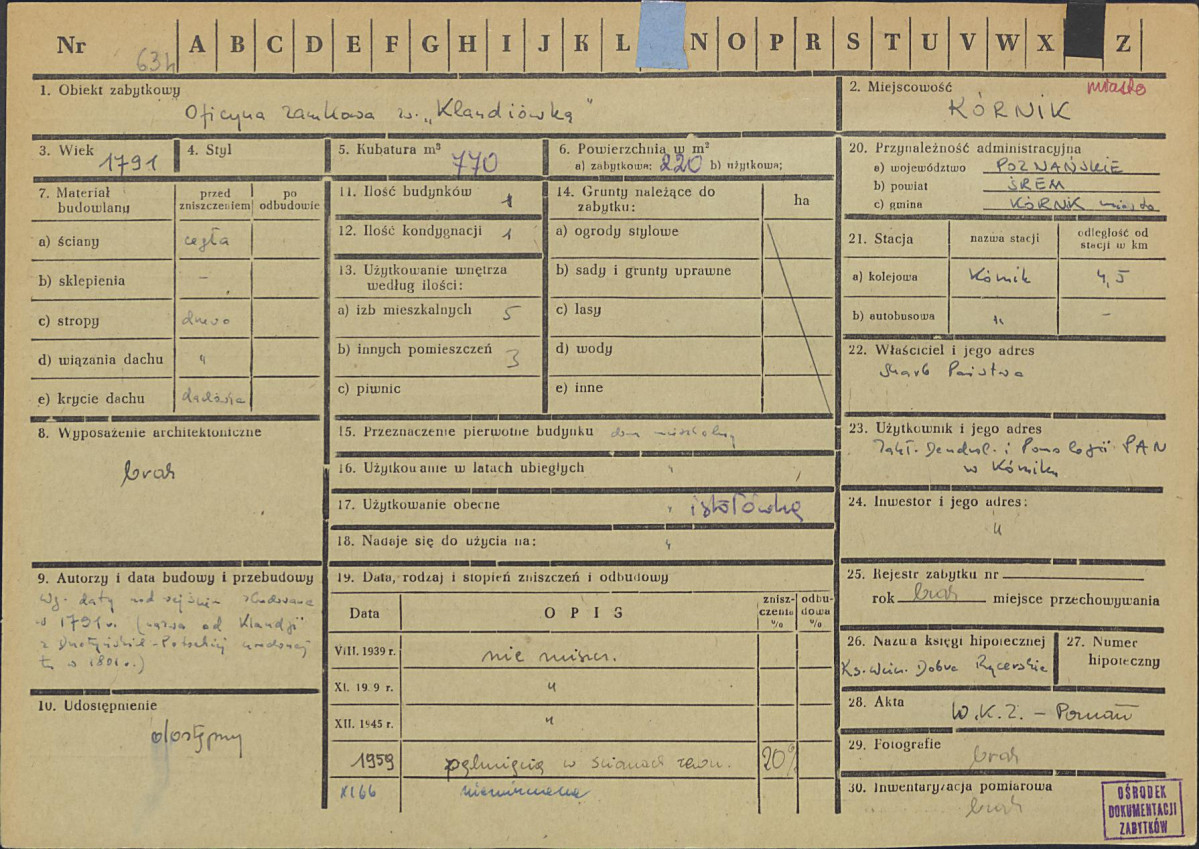 Nr A B C D E F G H I J K L N O P R S T U V W X Z
63
1. Obiekt zabytkowy
Oficyna zamkowa zw. „Klaudiówką"
2. Miejscowość miasto
KÓRNIK
3. Wiek
1791
4. Styl
5. Kubatura m³
770
6. Powierzchnia w m²
a) zabytkowa: 220 b) użytkowa:
20. Przynależność administracyjna
a) województwo POZNAŃSKIE
b) powiat ŚREM
c) gmina KÓRNIK miasto
7. Materiał budowlany
przed zniszczeniem
po odbudowie
a) ściany cegła
b) sklepienia –
c) stropy drewo
d) wiązania dachu "
e) krycie dachu dachówka
8. Wyposażenie architektoniczne
brak
9. Autorzy i data budowy i przebudowy
Wg. daty nad wejściem zbudowana
w 1791 r. (nazwa od Klaudji
z Działyńskich-Potockiej urodzonej
w 1801 r.)
10. Udostępnienie
dostępny
11. Ilość budynków 1
12. Ilość kondygnacji 1
13. Użytkowanie wnętrza
według ilości:
a) izb mieszkalnych 5
b) innych pomieszczeń 3
c) piwnic
14. Grunty należące do
zabytku:
ha
a) ogrody stylowe
b) sady i grunty uprawne
c) lasy
d) wody
e) inne
15. Przeznaczenie pierwotne budynku dom mieszkalny
16. Użytkowanie w latach ubiegłych "
17. Użytkowanie obecne " i stołówka
18. Nadaje się do użycia na: "
19. Data, rodzaj i stopień zniszczeń i odbudowy
Data
O P I S
znisz-
czenia
%
odbu-
dowa
%
VIII. 1939 r. nie niszcz.
XI. 19 9 r. "
XII. 1945 r. "
1959 pęknięcia w ścianach zewn. 20%
XI 66
21. Stacja
nazwa stacji
odległość od
stacji w km
a) kolejowa Kórnik 4,5
b) autobusowa " –
22. Właściciel i jego adres
Skarb Państwa
23. Użytkownik i jego adres
Zakł. Dendrol. i Pomologii PAN
w Kórniku
24. Inwestor i jego adres:
"
25. Rejestr zabytku nr
rok brak miejsce przechowywania
26. Nazwa księgi hipotecznej
Ks. Wiecz. Dobra Rycerskie
27. Numer
hipoteczny
28. Akta
W.K.Z. – Poznań
29. Fotografie
brak
30. Inwentaryzacja pomiarowa
brak
OŚRODEK
DOKUMENTACJI
ZABYTKÓW